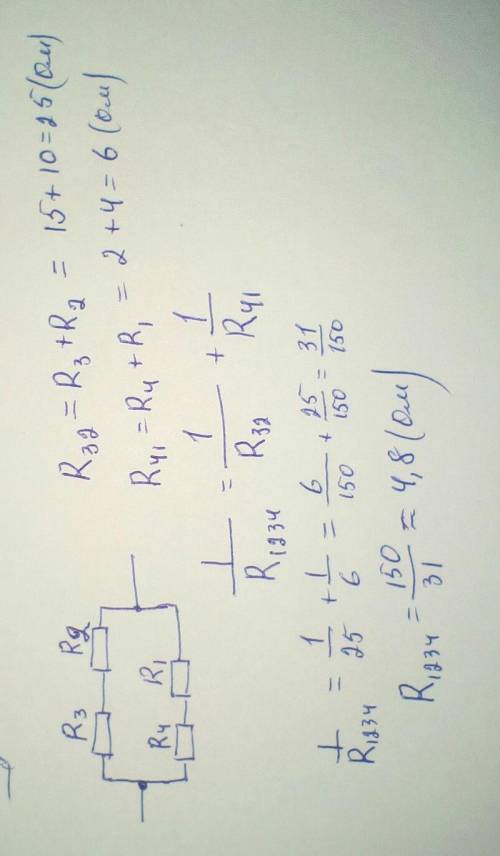 R3 R2
R4 R1
R32 = R3 + R2 = 15 + 10 = 25 (Ом)
R41 = R4 + R1 = 2 + 4 = 6 (Ом)
1/R1234 = 1/R32 + 1/R41
1/R1234 = 1/25 + 1/6 = 6/150 + 25/150 = 31/150
R1234 = 150/31 ≈ 4,8 (Ом)